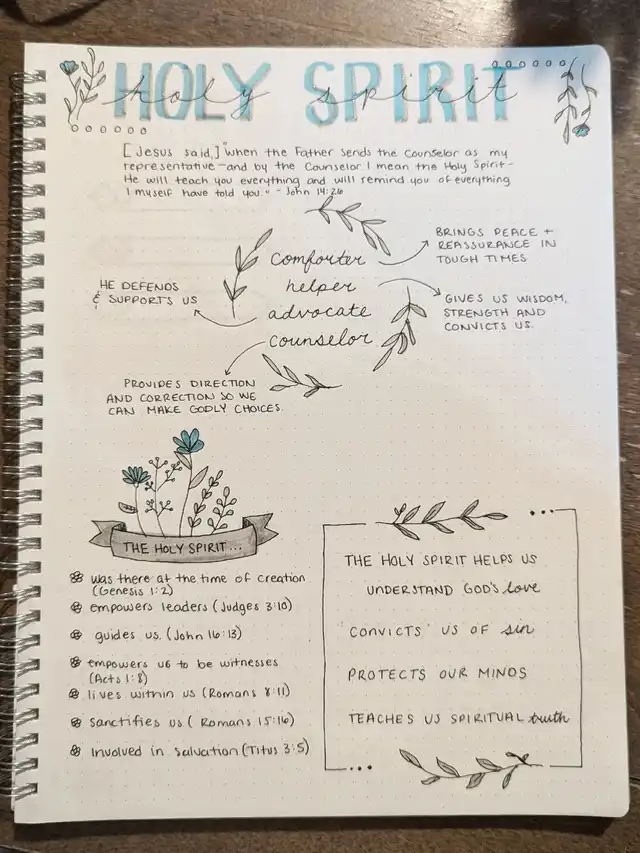 HOLY SPIRIT
holy spirit
[Jesus said,] "When the Father sends the Counselor as my
representative—and by the Counselor I mean the Holy Spirit—
He will teach you everything and will remind you of everything
I myself have told you." - John 14:26
comforter
helper
advocate
counselor
BRINGS PEACE +
REASSURANCE IN
TOUGH TIMES
GIVES US WISDOM,
STRENGTH AND
CONVICTS US.
HE DEFENDS
& SUPPORTS US
PROVIDES DIRECTION
AND CORRECTION SO WE
CAN MAKE GODLY CHOICES.
THE HOLY SPIRIT...
was there at the time of creation
(Genesis 1:2)
empowers leaders (Judges 3:10)
guides us. (John 16:13)
empowers us to be witnesses
(Acts 1:8)
lives within us (Romans 8:11)
sanctifies us (Romans 15:16)
involved in salvation (Titus 3:5)
THE HOLY SPIRIT HELPS US
UNDERSTAND GOD'S love
'CONVICTS' US OF sin
PROTECTS OUR MINDS
TEACHES US SPIRITUAL truth